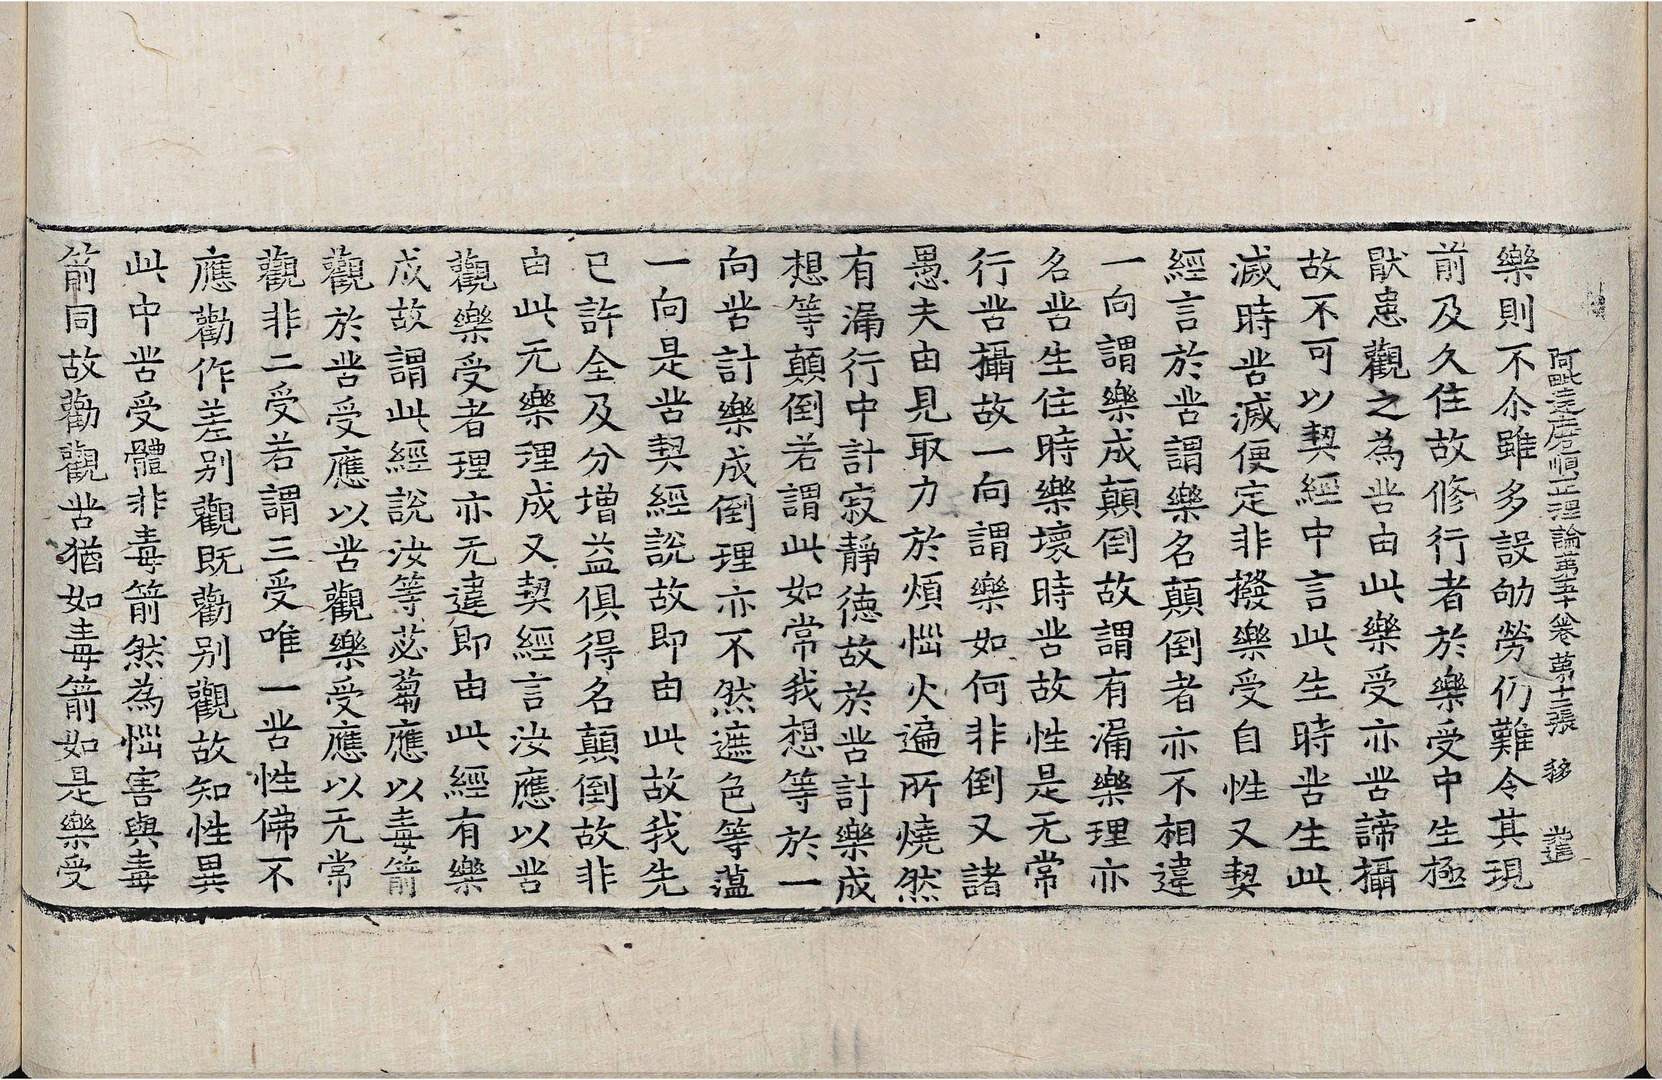 阿毗達磨順正理論第五十卷 第十二張 移 𮎰造
樂則不尒雖多設劬勞仍難令其現
前及久住故修行者於樂受中生極
猒患觀之為苦由此樂受亦苦諦攝
故不可以契經中言此生時苦生此
滅時苦滅便定非撥樂受自性又契
經言於苦謂樂名顛倒者亦不相違
一向謂樂成顛倒故謂有漏樂理亦
名苦生住時樂壞時苦故性是无常
行苦攝故一向謂樂如何非倒又諸
愚夫由見取力於煩惱火遍所燒然
有漏行中計寂靜德故於苦計樂成
想等顛倒若謂此如常我想等於一
向苦計樂成倒理亦不然遮色等蘊
一向是苦契經說故即由此故我先
已許全及分增益俱得名顛倒故非
由此无樂理成又契經言汝應以苦
觀樂受者理亦无違即由此經有樂
成故謂此經說汝等苾蒭應以毒箭
觀於苦受應以苦觀樂受應以无常
觀非二受若謂三受唯一苦性佛不
應勸作差别觀既勸别觀故知性異
此中苦受體非毒箭然為惱害與毒
箭同故勸觀苦猶如毒箭如是樂受